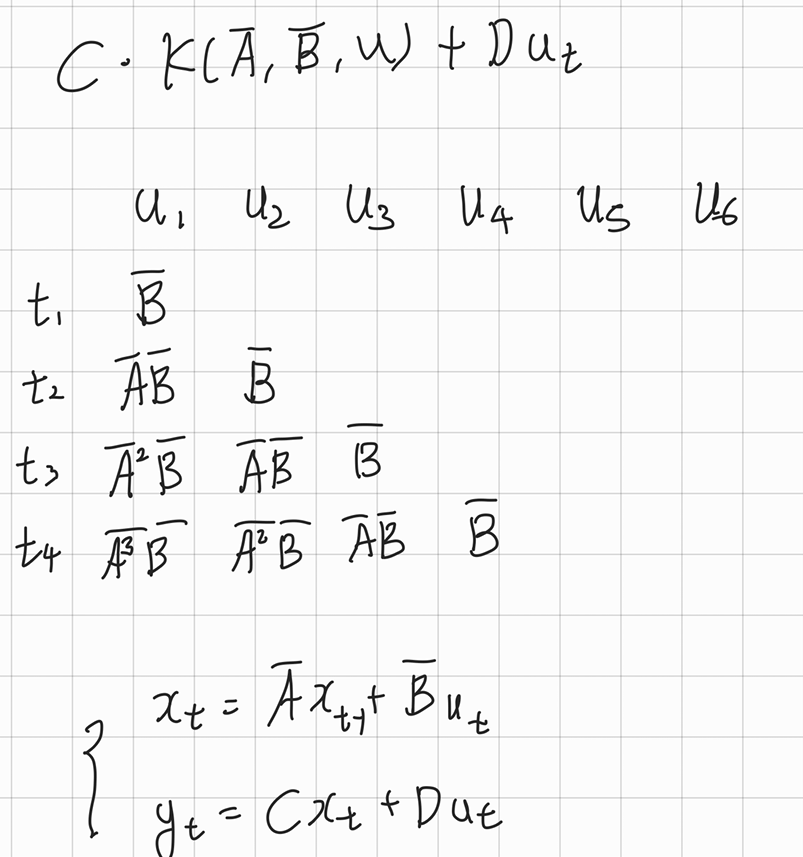 C · K(A̅, B̅, u) + D uₜ
u₁ u₂ u₃ u₄ u₅ u₆
t₁ B̅
t₂ A̅B̅ B̅
t₃ A̅²B̅ A̅B̅ B̅
t₄ A̅³B̅ A̅²B̅ A̅B̅ B̅
xₜ = A̅xₜ₋₁ + B̅uₜ
yₜ = Cxₜ + Duₜ